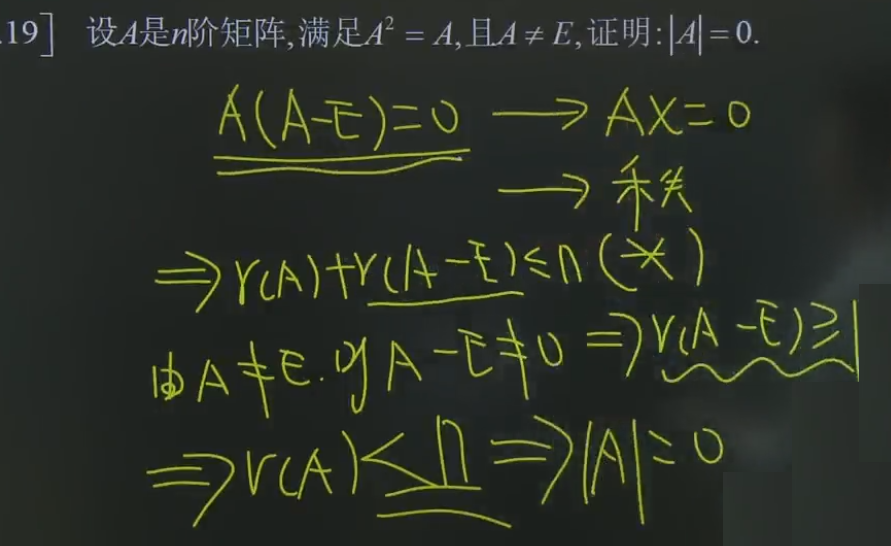 .19] 设A是n阶矩阵,满足A² = A,且A ≠ E,证明:|A| = 0.
A(A-E)=0 → AX=0
→ 秩
⇒ r(A)+r(A-E)≤n (*)
由A≠E.则A-E≠0 ⇒r(A-E)≥1
⇒r(A)<n⇒|A|=0